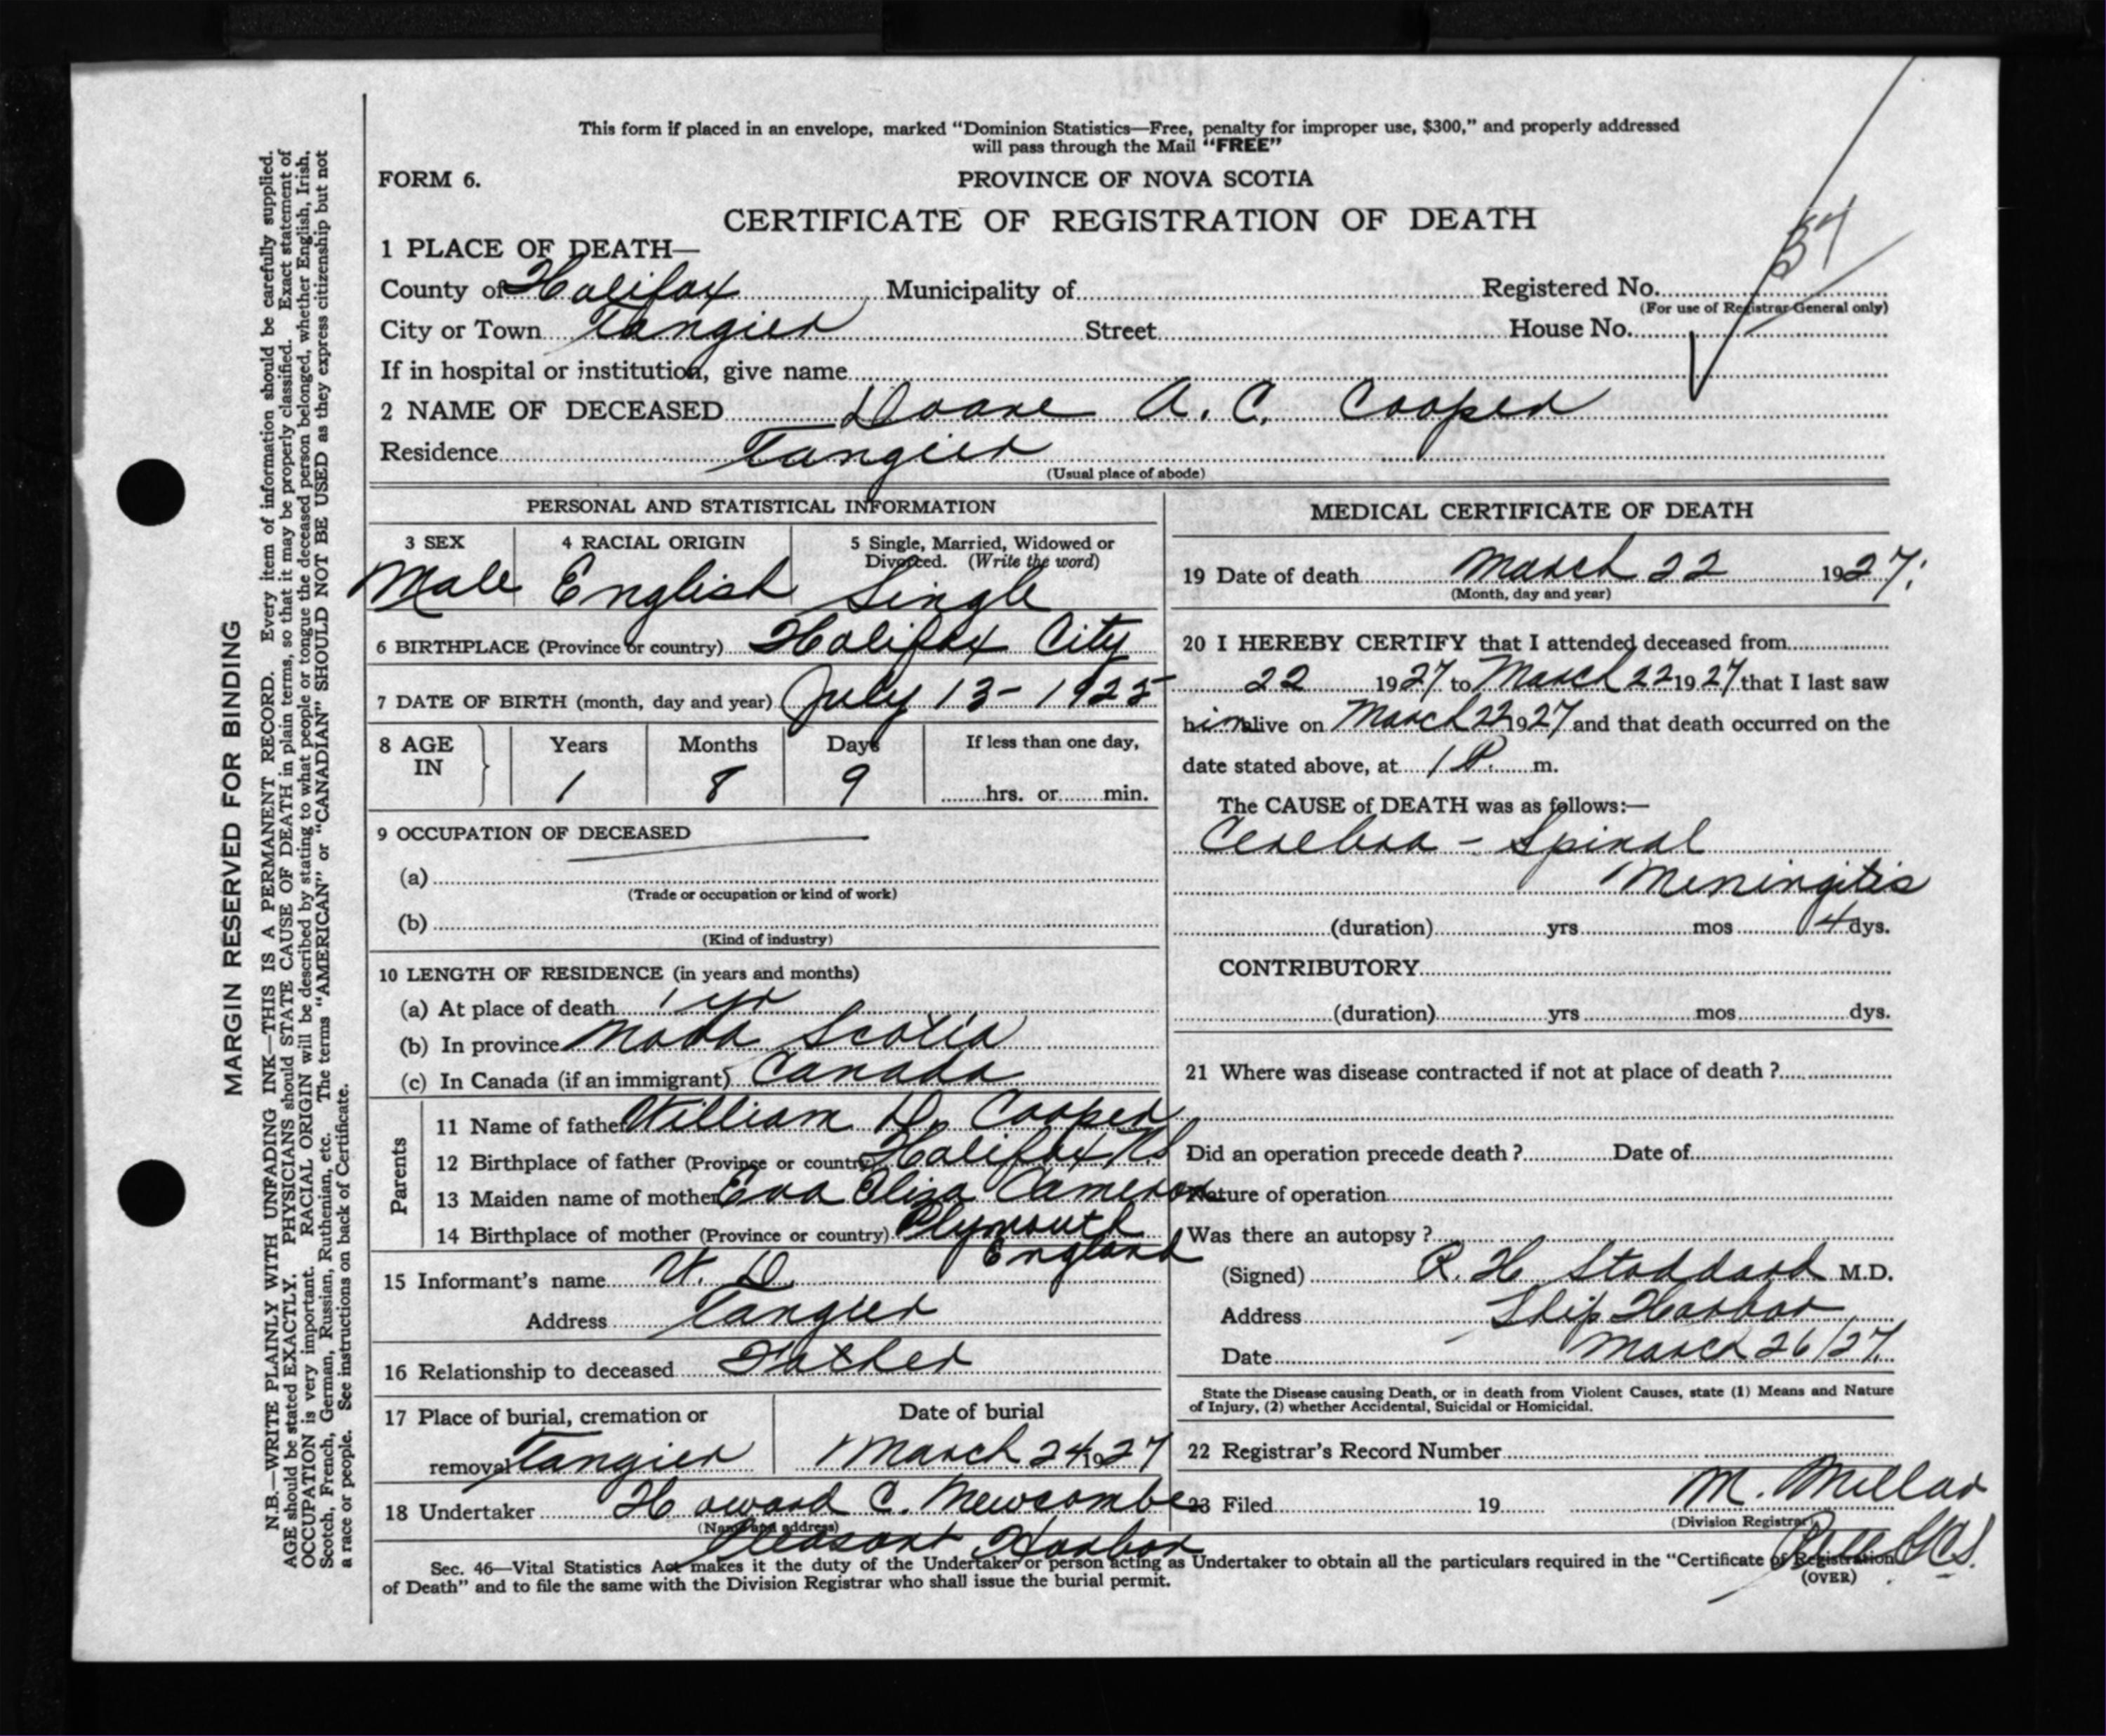 This form if placed in an envelope, marked “Dominion Statistics—Free, penalty for improper use, $300,” and properly addressed
will pass through the Mail “FREE”
FORM 6.
PROVINCE OF NOVA SCOTIA
CERTIFICATE OF REGISTRATION OF DEATH
57
1 PLACE OF DEATH—
County of Halifax Municipality of Registered No.
(For use of Registrar General only)
City or Town Tangier Street House No.
If in hospital or institution, give name
2 NAME OF DECEASED Doane A. C. Cooper
Residence Tangier
(Usual place of abode)
PERSONAL AND STATISTICAL INFORMATION
3 SEX 4 RACIAL ORIGIN 5 Single, Married, Widowed or
Divorced. (Write the word)
Male English Single
6 BIRTHPLACE (Province or country) Halifax City
7 DATE OF BIRTH (month, day and year) July 13 - 1925
8 AGE Years Months Days If less than one day,
IN 1 8 9 hrs. or min.
9 OCCUPATION OF DECEASED
(a)
(Trade or occupation or kind of work)
(b)
(Kind of industry)
10 LENGTH OF RESIDENCE (in years and months)
(a) At place of death 1 yr
(b) In province Nova Scotia
(c) In Canada (if an immigrant) Canada
Parents
11 Name of father William D. Cooper
12 Birthplace of father (Province or country) Halifax NS
13 Maiden name of mother Eva Eliza Cameron
14 Birthplace of mother (Province or country) Plymouth
England
15 Informant's name W. D.
Address Tangier
16 Relationship to deceased Father
17 Place of burial, cremation or Date of burial
removal Tangier March 24 1927
18 Undertaker Howard C. Newcombe
(Name and address)
Pleasant Harbor
MEDICAL CERTIFICATE OF DEATH
19 Date of death March 22 1927.
(Month, day and year)
20 I HEREBY CERTIFY that I attended deceased from
22 1927 to March 22 1927 that I last saw
him alive on March 22 1927 and that death occurred on the
date stated above, at 1 P. m.
The CAUSE of DEATH was as follows:—
Cerebra - Spinal
Meningitis
(duration) yrs mos 4 dys.
CONTRIBUTORY
(duration) yrs mos dys.
21 Where was disease contracted if not at place of death ?
Did an operation precede death ? Date of
Nature of operation
Was there an autopsy ?
(Signed) R. H Stoddard M.D.
Address Ship Harbor
Date March 26/27.
State the Disease causing Death, or in death from Violent Causes, state (1) Means and Nature
of Injury, (2) whether Accidental, Suicidal or Homicidal.
22 Registrar's Record Number
23 Filed 19 M. Millar
(Division Registrar)
Sec. 46—Vital Statistics Act makes it the duty of the Undertaker or person acting as Undertaker to obtain all the particulars required in the “Certificate of Registration
of Death” and to file the same with the Division Registrar who shall issue the burial permit.
(OVER)
MARGIN RESERVED FOR BINDING
N.B.—WRITE PLAINLY WITH UNFADING INK—THIS IS A PERMANENT RECORD. Every item of information should be carefully supplied.
AGE should be stated EXACTLY. PHYSICIANS should STATE CAUSE OF DEATH in plain terms, so that it may be properly classified. Exact statement of
OCCUPATION is very important. RACIAL ORIGIN will be described by stating to what people or tongue the deceased person belonged, whether English, Irish,
Scotch, French, German, Russian, Ruthenian, etc. The terms “AMERICAN” or “CANADIAN” SHOULD NOT BE USED as they express citizenship but not
a race or people. See instructions on back of Certificate.